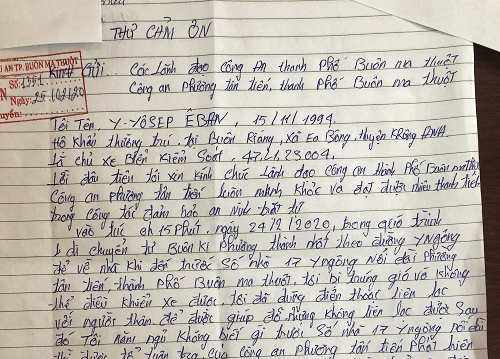 THƯ CẢM ƠN
AN TP. BUÔN MA THUỘT
Số: 1551
Ngày: 25/02/20
Kính gửi: Các Lãnh đạo Công An thành Phố Buôn ma thuột
Công an Phường tân tiến, thành Phố Buôn ma thuột
Tôi Tên, Y-YÔSEP ÊBAN, 15/11/1994.
Hộ Khẩu thường trú, tại Buôn Riăng, Xã Ea Bông, huyện KRông ANA
Là chủ xe Biển Kiểm Soát, 47L1.23004.
Lời đầu tiên tôi xin kính chúc Lãnh đạo công an thành Phố Buôn ma thuột
Công an phường tân tiến luôn mạnh Khỏe và đạt được nhiều thành tích
trong Công tác đảm bảo an ninh trật tự
vào lúc 0h 15 Phút, ngày 24/2/2020, trong quá trình
di chuyển từ Buôn Ki Phường thành nhất theo đường Y Ngông
để về nhà Khi đến trước Số nhà 17 Y ngông Nối dài Phường
tân tiến, thành Phố Buôn ma thuột, tôi bị trúng gió và không
thể điều khiển xe được, tôi đã dùng điện thoại liên lạc
với người thân để được giúp đỡ nhưng không liên lạc được Sau
đó Tôi nằm ngủ Không biết gì trước Số nhà 17 Y ngông nối dài
thì được tổ tuần tra của công an phường tân tiến Phát hiện